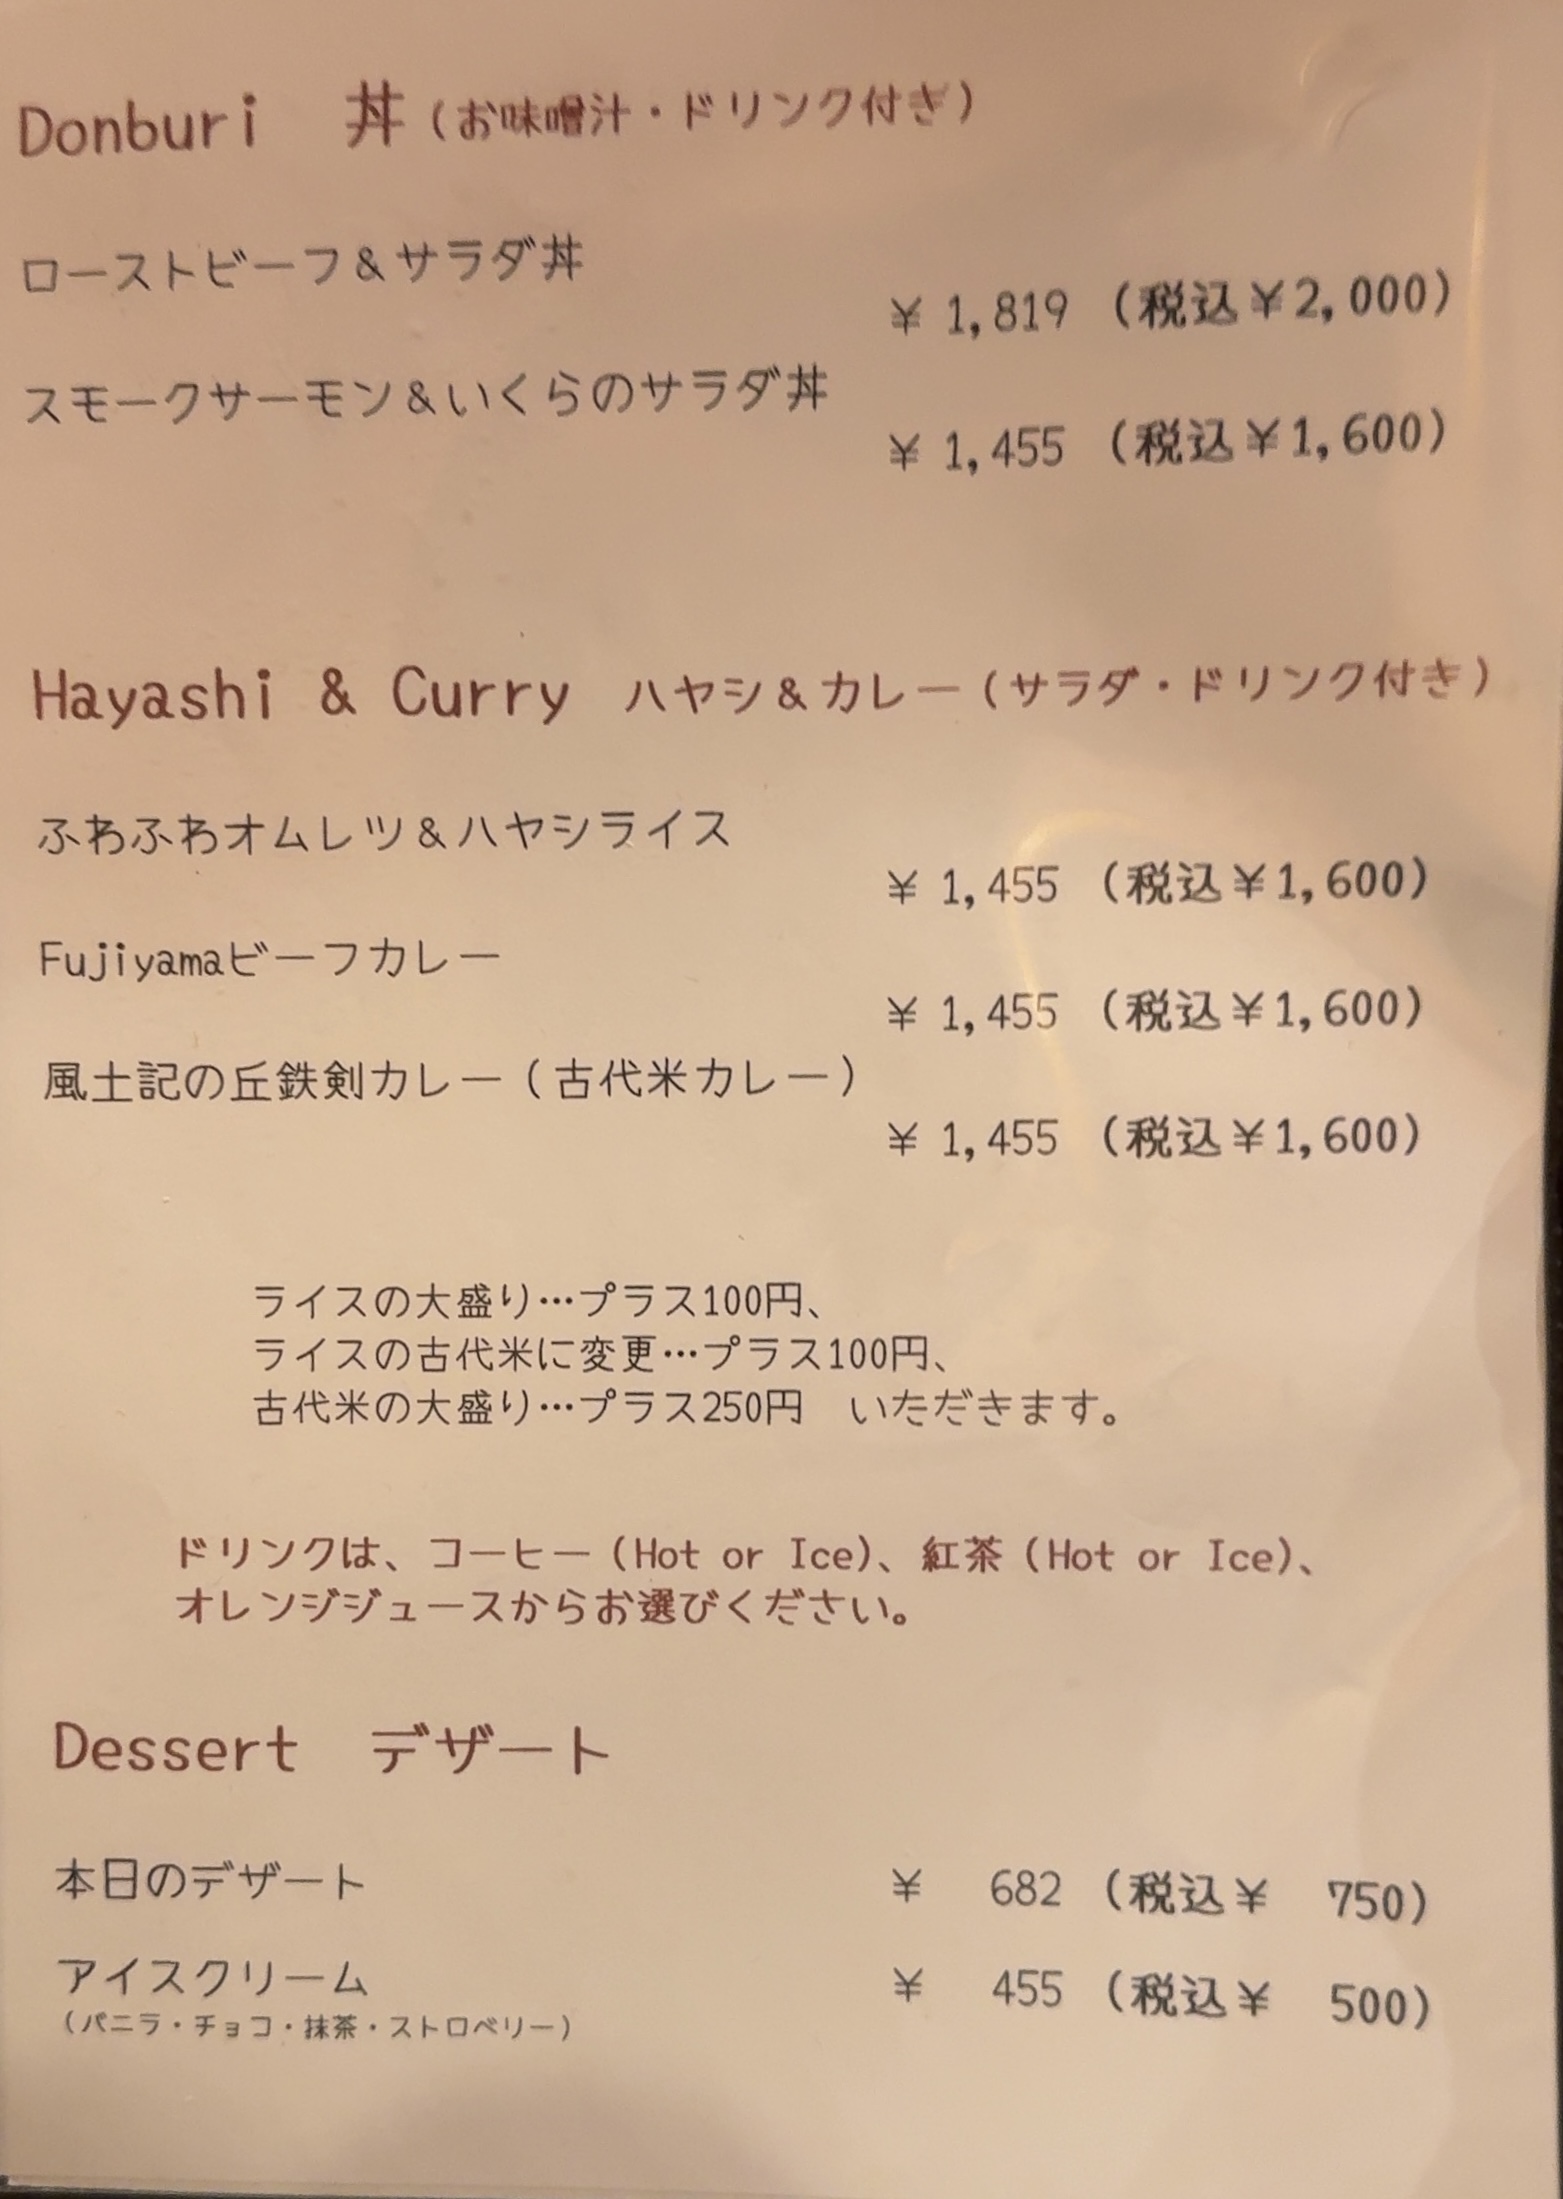 Donburi 丼（お味噌汁・ドリンク付き）
ローストビーフ＆サラダ丼
¥ 1,819 （税込¥2,000）
スモークサーモン＆いくらのサラダ丼
¥ 1,455 （税込¥1,600）
Hayashi & Curry ハヤシ＆カレー（サラダ・ドリンク付き）
ふわふわオムレツ＆ハヤシライス
¥ 1,455 （税込¥1,600）
Fujiyamaビーフカレー
¥ 1,455 （税込¥1,600）
風土記の丘鉄剣カレー（古代米カレー）
¥ 1,455 （税込¥1,600）
ライスの大盛り…プラス100円、
ライスの古代米に変更…プラス100円、
古代米の大盛り…プラス250円　いただきます。
ドリンクは、コーヒー（Hot or Ice）、紅茶（Hot or Ice）、
オレンジジュースからお選びください。
Dessert デザート
本日のデザート ¥ 682 （税込¥ 750）
アイスクリーム ¥ 455 （税込¥ 500）
（バニラ・チョコ・抹茶・ストロベリー）